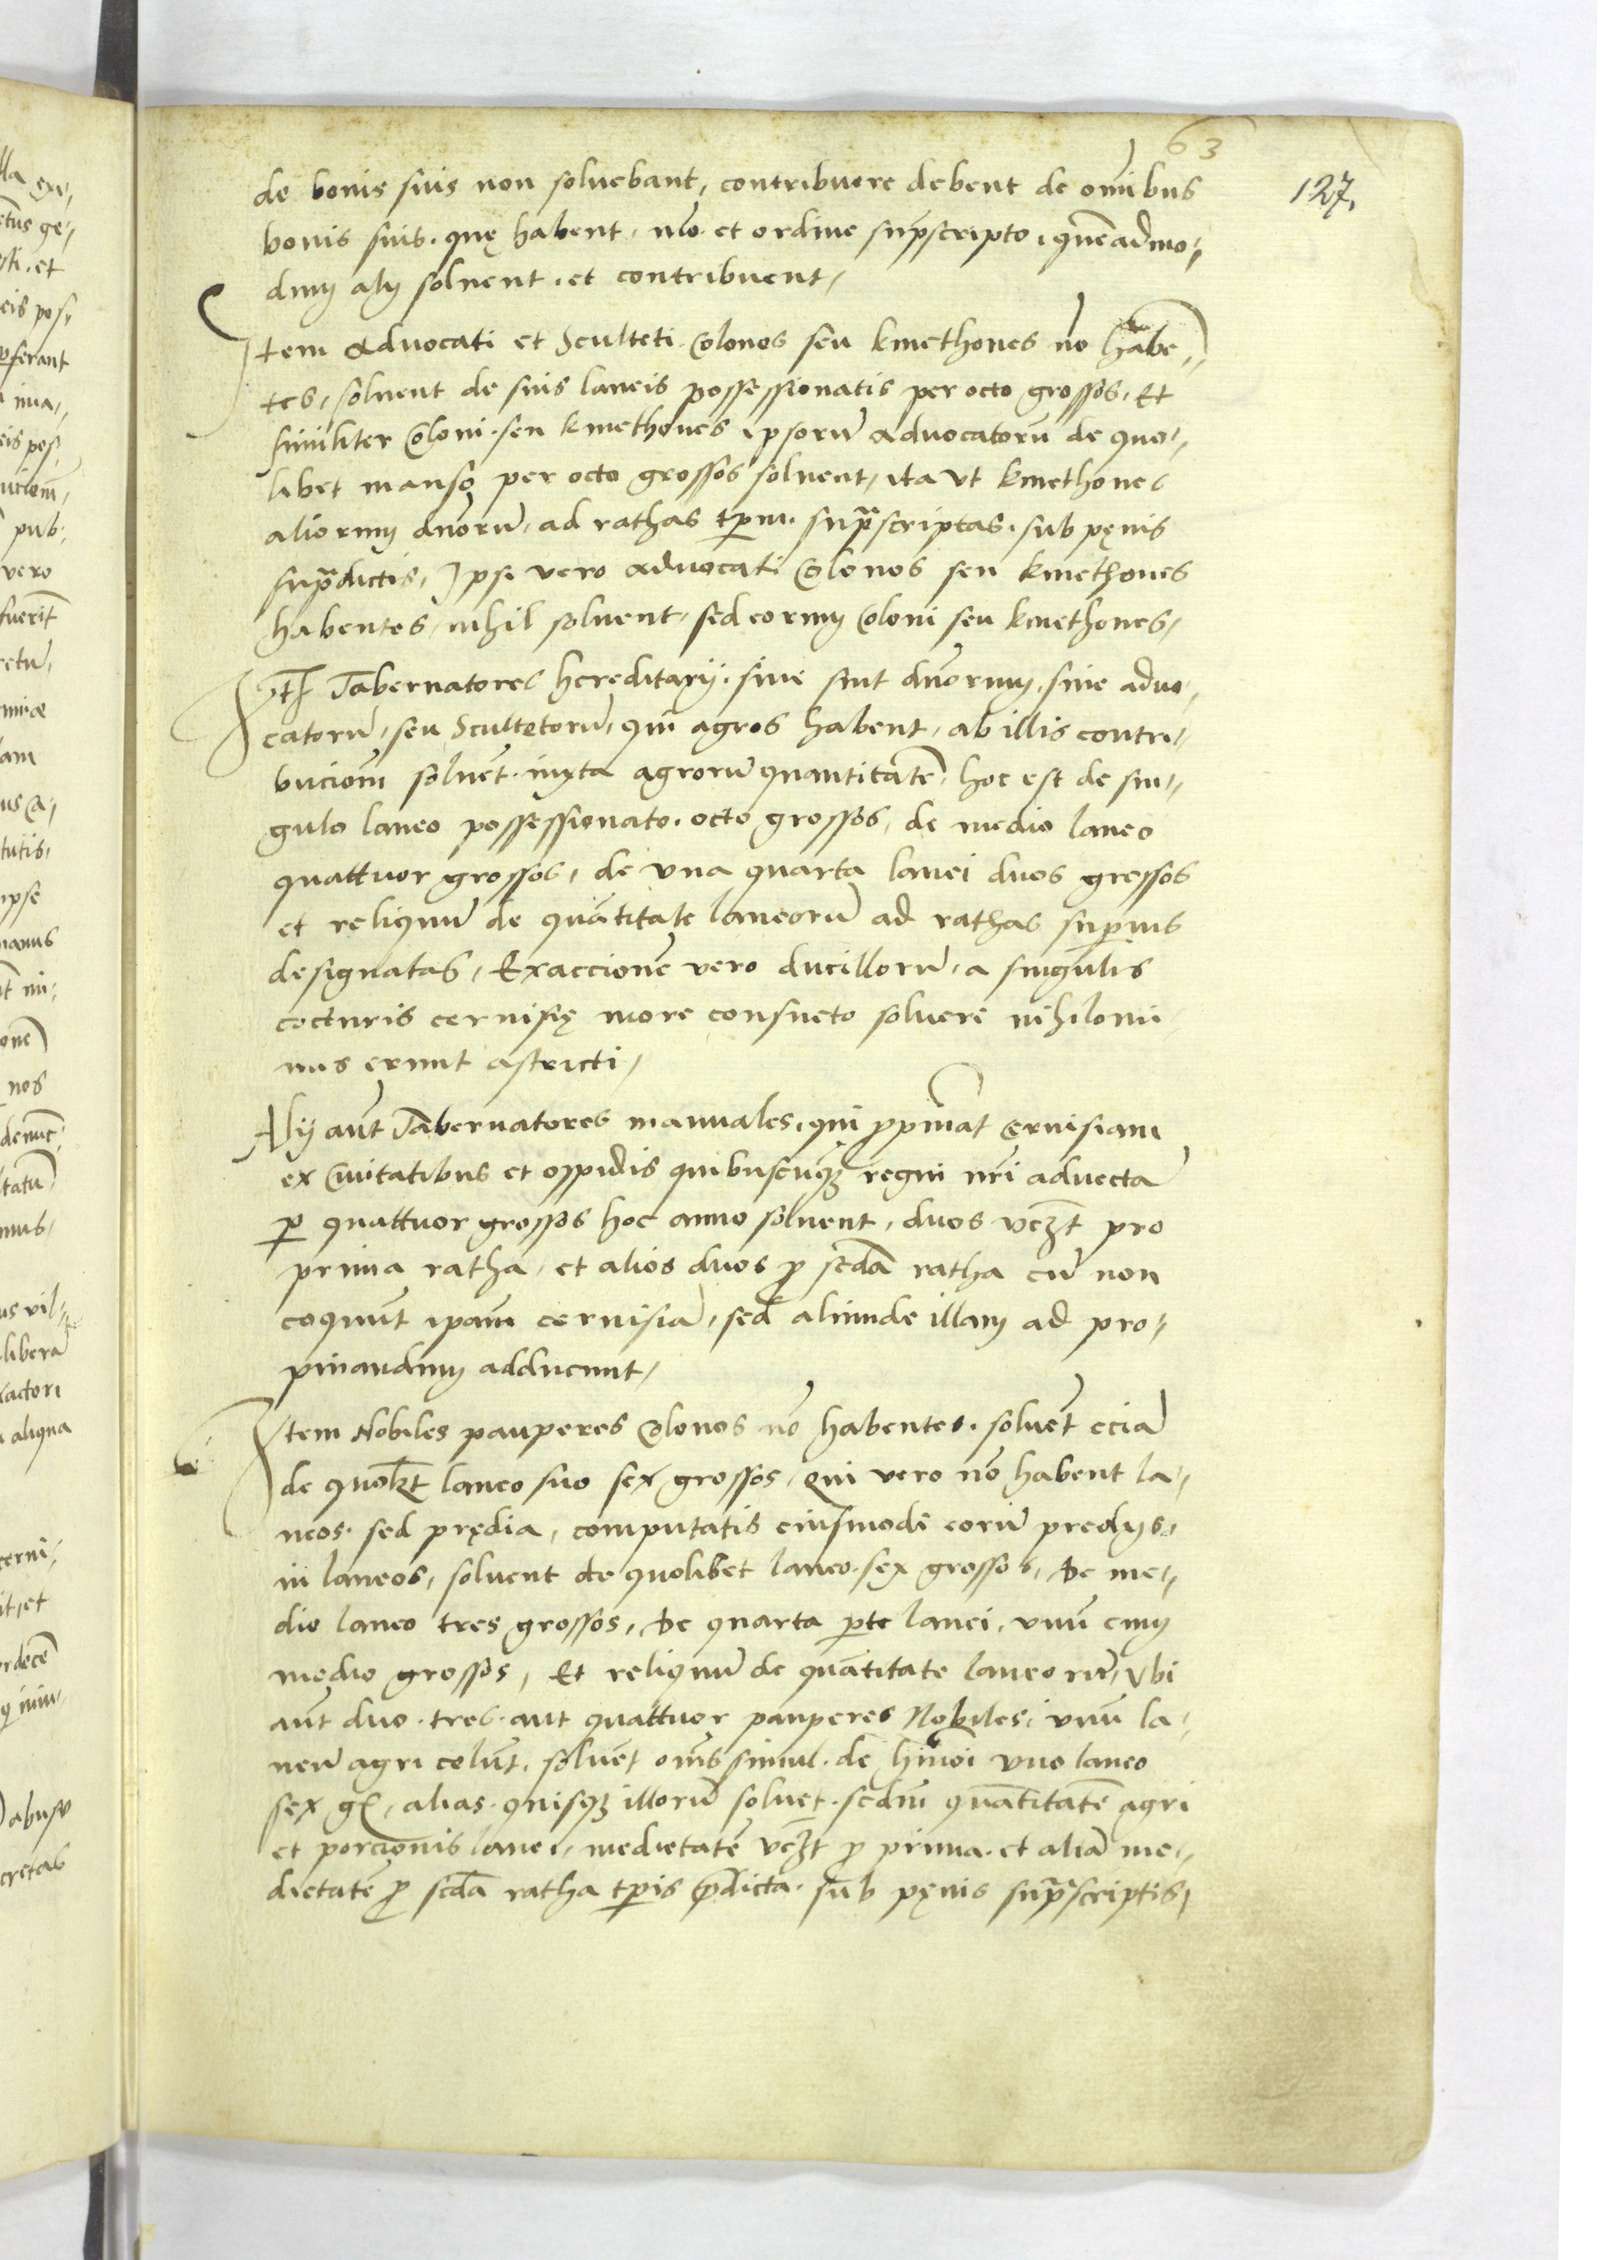 63
127.
de bonis suis non soluebant, contribuere debent de omībus
bonis suis. quę habent. mō. et ordine supscripto, quēadmo-
dum alij soluent. et contribuent,
Item Aduocati et Sculteti. Colonos seu kmethones nō haben-
tes, soluent de suis laneis possessionatis per octo grossos, Et
similiter Coloni. seu kmethones ipsorū Aduocatorū de quo-
libet manso per octo grossos soluent, ita vt kmethones
aliorum dnorū, ad rathas tprm. supascriptas. sub pęnis
supradictis, Ipsi vero Aduocati Colonos seu kmethones
habentes, nihil soluent, sed eorum Coloni seu kmethones,
Itē Tabernatores hereditarij. siue sint dnorum, siue aduo-
catorū, seu Scultetorū, qui agros habent, ab illis contri-
bucionē soluēt. iuxta agrorū quantitatē, hoc est de sin-
gulo laneo possessionato. octo grossos, de medio laneo
quattuor grossos, de vna quarta lanei duos grossos
et reliquū de quātitate laneorū ad rathas supius
designatas, Exaccionē vero ducillorū, a singulis
cocturis ceruisię more consueto soluere nihilomi-
nus erunt astricti,
Alij aūt Tabernatores manuales, qui ppināt Ceruisiam
ex Ciuitatibus et oppidis quibuscūqz regni nrī aduectā
p quattuor grossos hoc anno soluent, duos vczt pro
prima ratha, et alios duos p scdā ratha cū non
coquūt ipam ceruisiā, sed aliunde illam ad pro-
pinandum adducunt,
Item Nobiles pauperes Colonos nō habentes. soluēt eciā
de quolzt laneo suo sex grossos, Qui vero nō habent la-
neos. sed prędia, computatis eiusmodi eorū predijs,
in laneos, soluent de quolibet laneo. sex grossos, De me-
dio laneo tres grossos, De quarta pte lanei, vnū cum
medio grossos, Et reliquū de quātitate laneorū, Vbi
aūt duo. tres. aut quattuor pauperes Nobiles, vnū la-
neū agri colūt. soluēt omēs simul. de hmōi vno laneo
sex gr, alias. quisqz illorū soluet. scdm quātitatē agri
et porcionis lanei, medietatē vczt p prima. et aliā me-
dietatē p scdā ratha tpris pdicta. sub pęnis supascriptis,